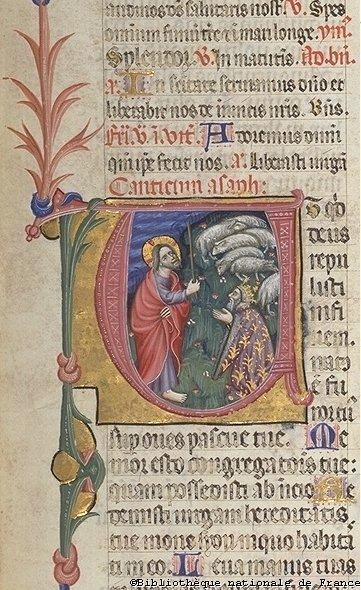 audi nos ds salutaris nost. V. Spes
omnium finiu tre et i mari longe. ymn.
Splendor V. In matutis. ad bn.
a. In scitate seruiamus dno et
liberabit nos de inimicis nris.
Adoremus dnm
qm ipse fecit nos. a. liberasti uirga
Canticum asaph:
Ut qd
deus
repu
listi
infi
nem.
e fu
sup oues pascue tue. Me
mor esto congregatois tue:
quam possedisti ab inicio Re
demisti uirgam hereditatis
tue mons syon in quo habita
sti in eo. Leua manus tuas
©Bibliothèque nationale de France